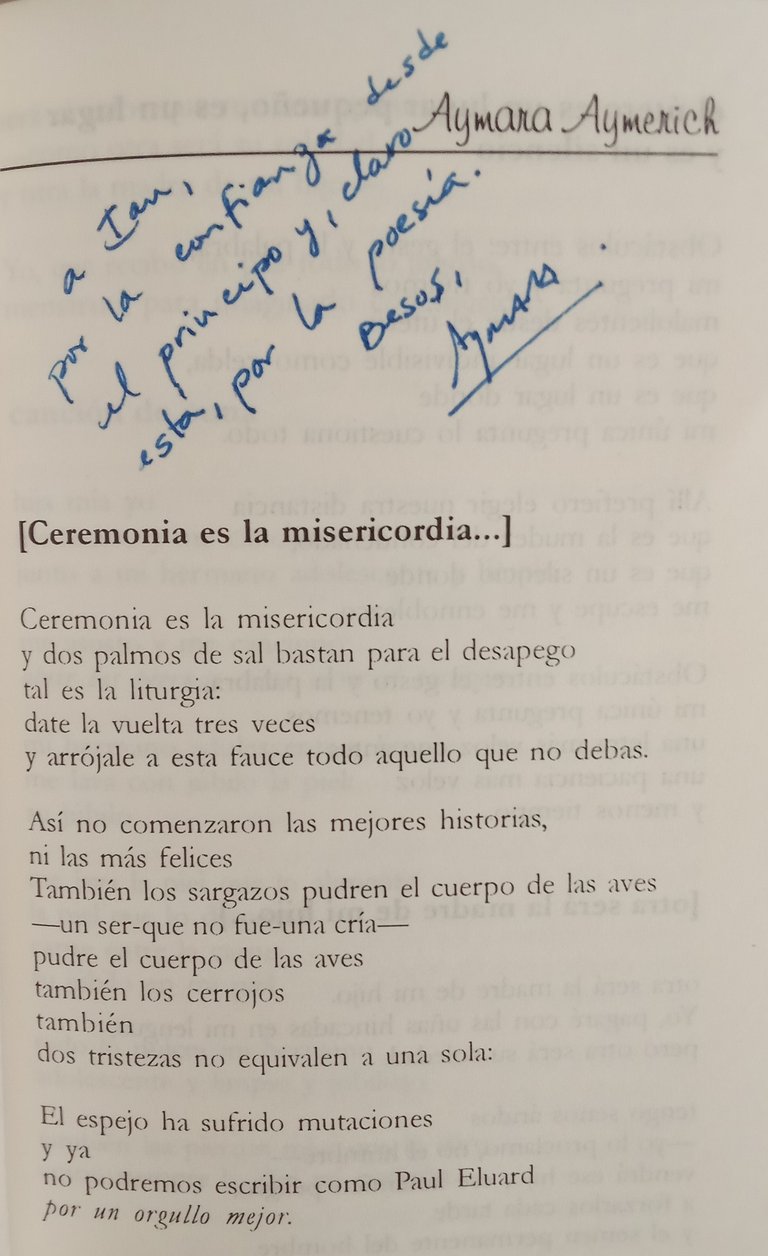 Aymara Aymerich
a Ian,
por la confianza desde
el principo y, claro
está, por la poesía.
Besos,
Aymara.
[Ceremonia es la misericordia...]
Ceremonia es la misericordia
y dos palmos de sal bastan para el desapego
tal es la liturgia:
date la vuelta tres veces
y arrójale a esta fauce todo aquello que no debas.
Así no comenzaron las mejores historias,
ni las más felices
También los sargazos pudren el cuerpo de las aves
—un ser-que no fue-una cría—
pudre el cuerpo de las aves
también los cerrojos
también
dos tristezas no equivalen a una sola:
El espejo ha sufrido mutaciones
y ya
no podremos escribir como Paul Eluard
por un orgullo mejor.